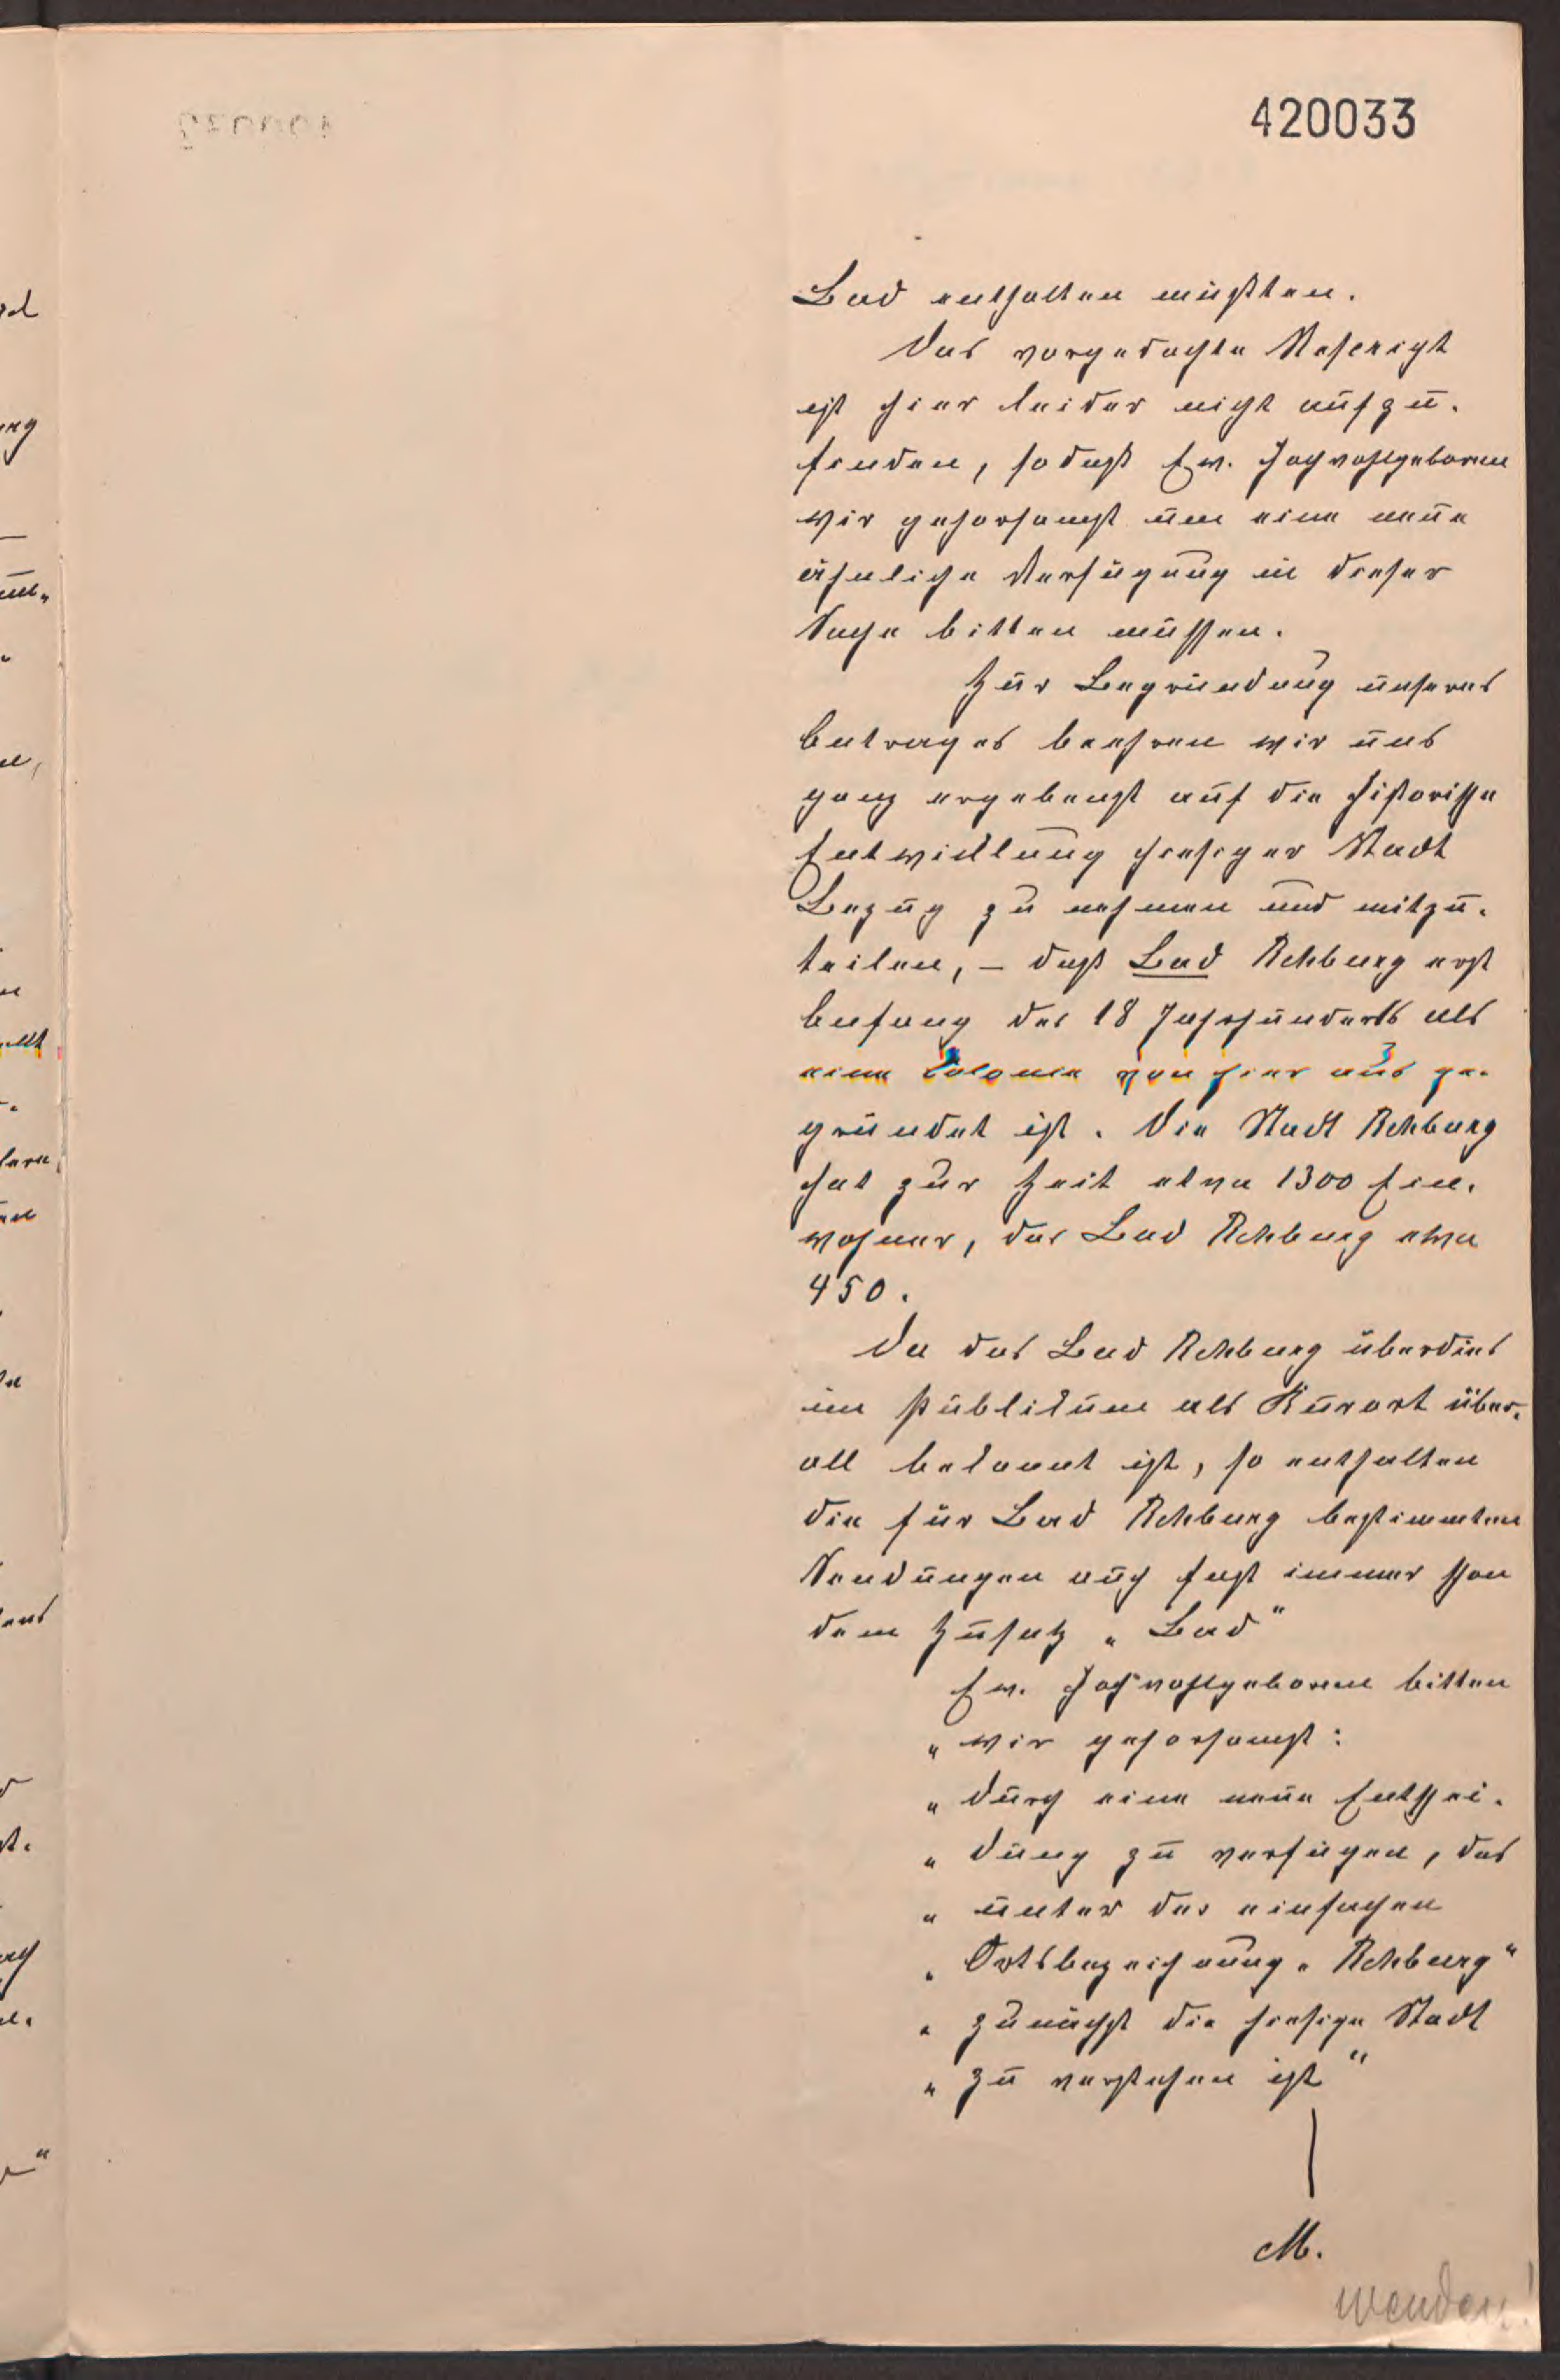 420033
Bad enthalten müßten.
Das vorgedachte Rescript
ist hier leider nicht aufzu-
finden, sodaß Ew. Hochwohlgeboren
wir gehorsamst um eine neue
ähnliche Verfügung in dieser
Sache bitten müssen.
Zur Begründung unseres
Antrages beehren wir uns
ganz ergebenst auf die historische
Entwicklung hiesiger Stadt
Bezug zu nehmen und mitzu-
teilen, – daß Bad Rehburg erst
Anfang des 18 Jahrhunderts als
eine Colonie von hier aus ge-
gründet ist. Die Stadt Rehburg
hat zur Zeit etwa 1300 Ein-
wohner, das Bad Rehburg etwa
450.
Da das Bad Rehburg überdies
im Publikum als Kurort über-
all bekannt ist, so enthalten
die für Bad Rehburg bestimmten
Sendungen auch fast immer schon
dem Zusatz „Bad"
Ew. Hochwohlgeboren bitten
„ wir gehorsamst:
„ durch eine neue Entschei-
„ dung zu verfügen, das
„ unter der einfachen
„ Ortsbezeichnung „Rehburg"
„ zunächst die hiesige Stadt
„ zu verstehen ist"
M.
wenden!